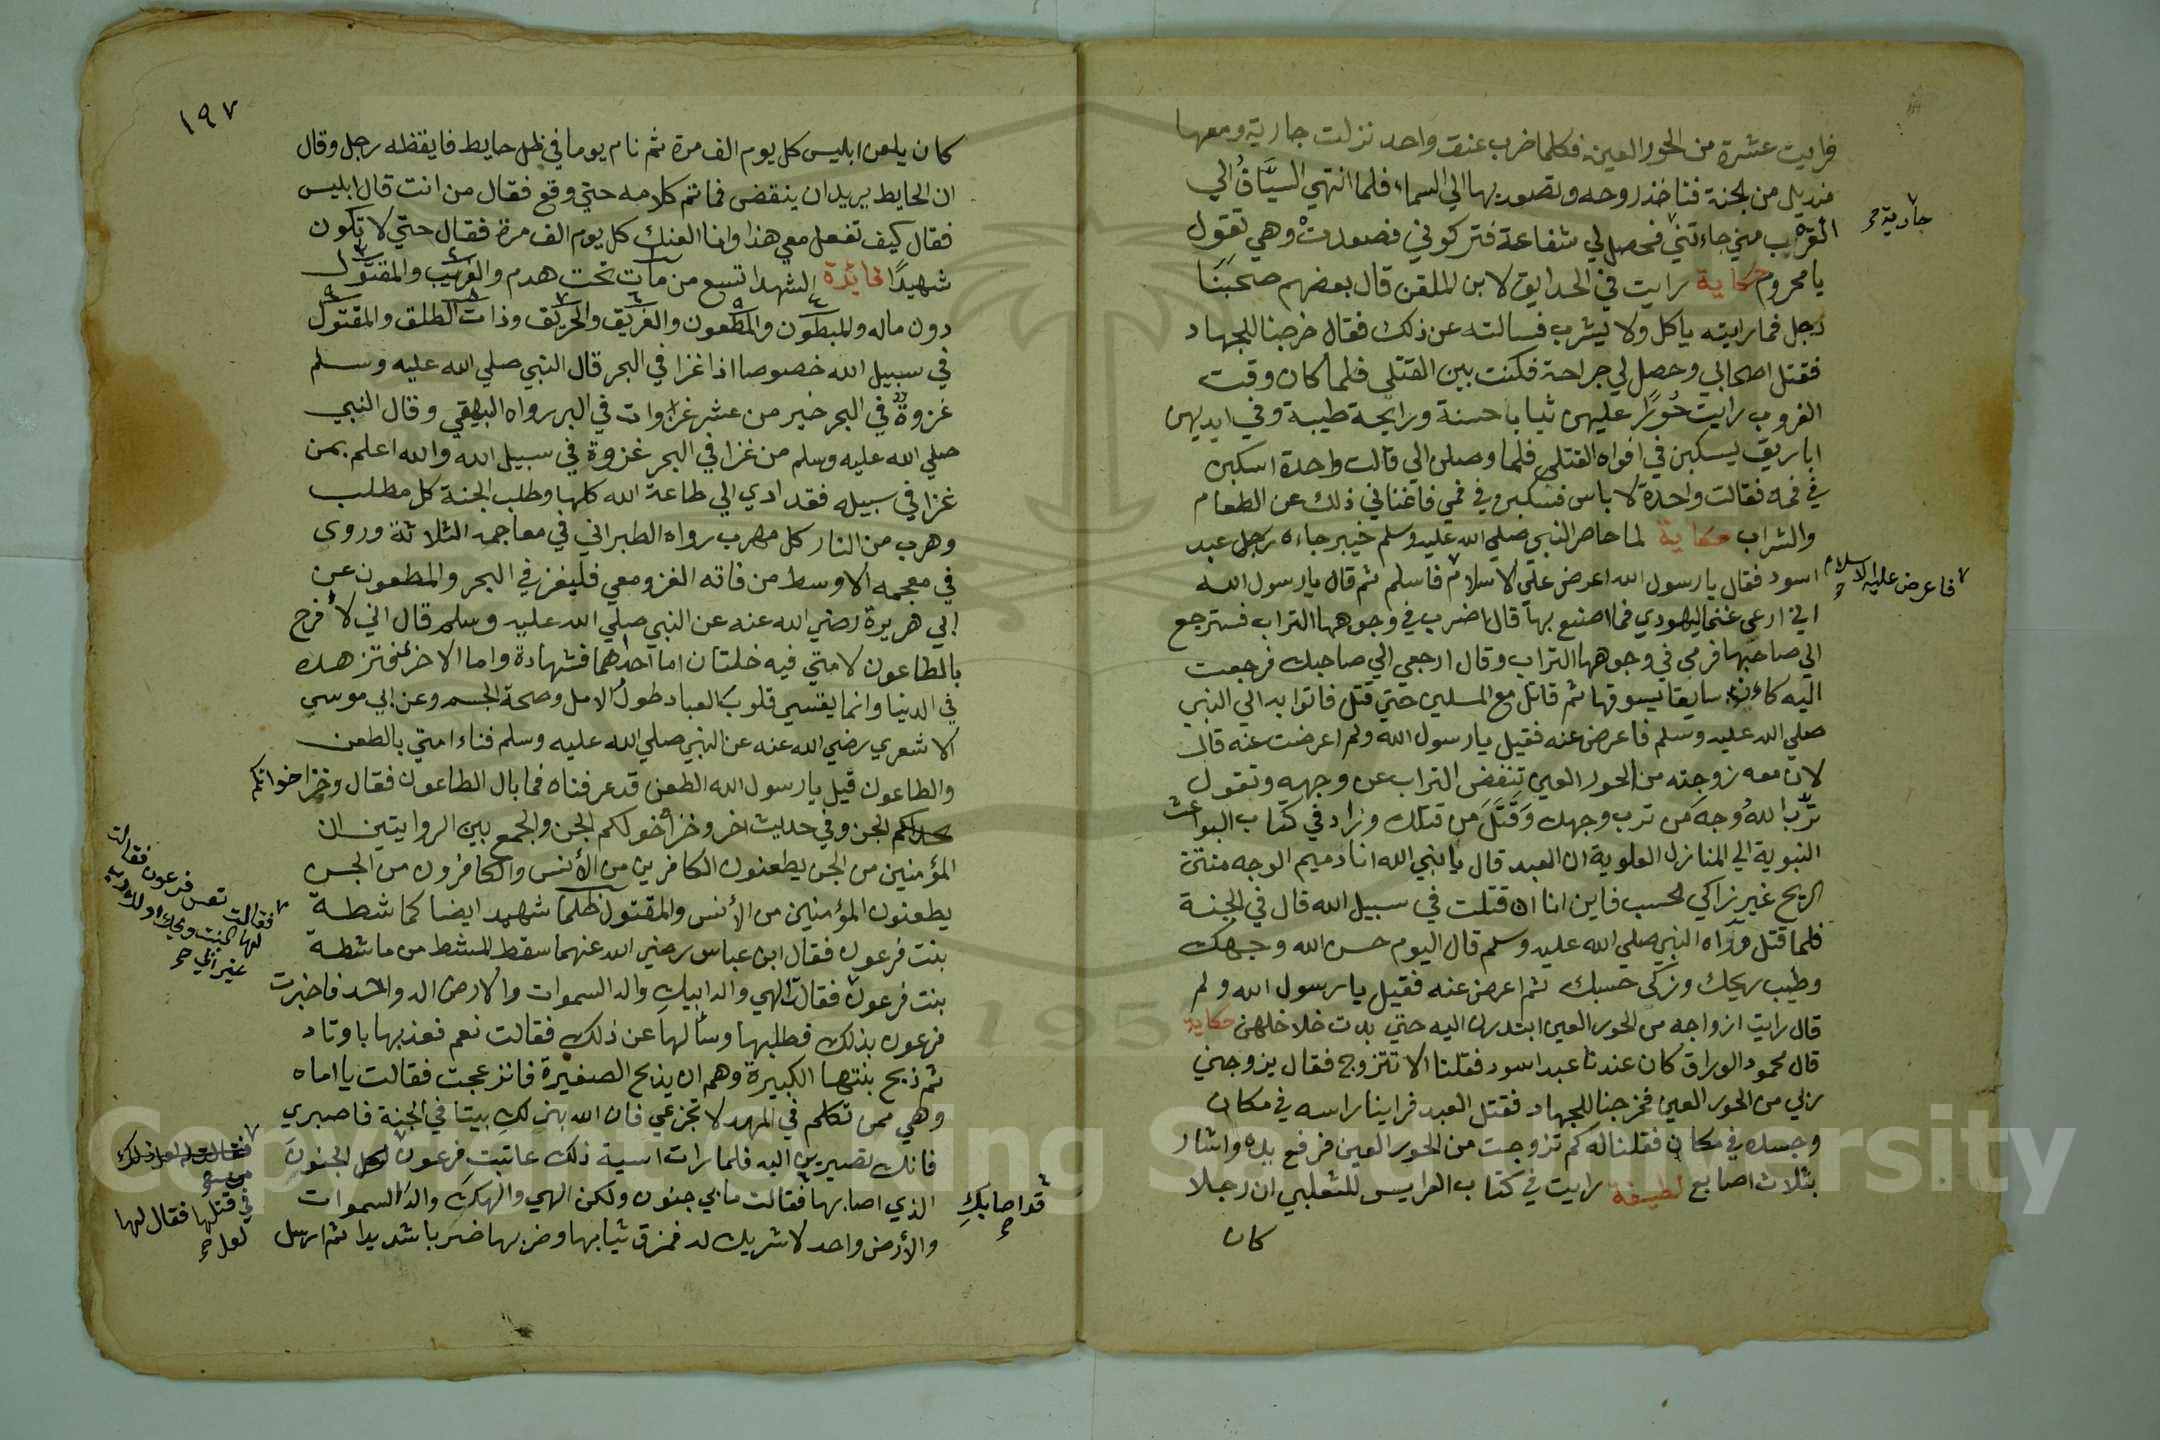 فرايت عشرة من الحور العين فكلما ضرب عنق واحد نزلت جارية ومعها
منديل من الجنة فتاخذ روحه وتصعد بها الي السماء فلما انتهي السيَّافُ الي
القرب مني جاءتني فحصل لي شفاعة فتركوني فصعدتْ وهي تقول
جارية صح
يا محروم حكاية رايت في الحدايق لابن الملقن قال بعضهم صحبَنَا
رجل فما رايته ياكل ولا يشرب فسالته عن ذلك فقال خرجنا للجهاد
فقتل اصحابي وحصل لي جراحة فكنت بين القتلي فلما كان وقت
الغروب رايت حُورًا عليهن ثيابا حسنة ورايحة طيبة وفي ايديهن
اباريق يسكبن في افواه القتلي فلما وصلن الي قالت واحدة اسكبن
في فمه فقالت واحدة لا باس فسكبن في فمي فاغناني ذلك عن الطعام
والشراب حكاية لما حاصر النبي صلي الله عليه وسلم خيبر جاءه رجل عبد
اسود فقال يا رسول الله اعرض علي الاسلام فاسلم ثم قال يا رسول الله
فاعرض عليه الاسلام صح
اني ارعي غنما ليهودي فما اصنع بها قال اضرب في وجوهها التراب فسترجع
الي صاحبها فرمي في وجوهها التراب وقال ارجعي الي صاحبك فرجعت
اليه كان سايقا يسوقها ثم قاتل مع المسلمين حتي قتل فاتوا به الي النبي
صلي الله عليه وسلم فاعرض عنه فقيل يا رسول الله ولم اعرضت عنه قال
لان معه زوجته من الحور العين تنفض التراب عن وجهه وتقول
ترّب اللهُ وجه من ترب وجهك وَقَتَلَ من قتلك وزاد في كتاب البواعث
النبوية الي المنازل العلوية ان العبد قال يا نبي الله انا دميم الوجه منتن
الريح غير زاكي الحسب فاين انا ان قتلت في سبيل الله قال في الجنة
فلما قتل وراه النبي صلي الله عليه وسلم قال اليوم حسن الله وجهك
وطيب ريحك وزكى حسبك ثم اعرض عنه فقيل يا رسول الله ولم
قال رايت ازواجه من الحور العين ابتدرن اليه حتي بدت خلاخلهن حكاية
قال محمود الوراق كان عندنا عبد اسود فقلنا الا تتزوج فقال يزوجني
ربي من الحور العين فخرجنا للجهاد فقتل العبد فراينا راسه في مكان
وجسده في مكان فقلنا له كم تزوجت من الحور العين فرفع يده واشار
بثلاث اصابع لطيفة رايت في كتاب العرايس للثعلبي ان رجلا
كان
١٩٧
كان يلعن ابليس كل يوم الف مرة ثم نام يوما في ظل حايط فايقظه رجل وقال
ان الحايط يريد ان ينقض فما تم كلامه حتي وقع فقال من انت قال ابليس
فقال كيف تفعل معي هذا وانا العنك كل يوم الف مرة فقال حتي لا تكون
شهيدًا فائدة الشهدا تسع من مات تحت هدم والغريب والمقتول
دون ماله والمبطون والمطعون والغريق والحريق وذات الطلق والمقتول
في سبيل الله خصوصا اذا غزا في البحر قال النبي صلي الله عليه وسلم
غزوة في البحر خير من عشر غزاوات في البر رواه البيهقي وقال النبي
صلي الله عليه وسلم من غزا في البحر غزوة في سبيل الله والله اعلم بمن
غزا في سبيله فقد ادي الي طاعة الله كلها وطلب الجنة كل مطلب
وهرب من النار كل مهرب رواه الطبراني في معاجمه الثلاثة وروى
في معجمه الاوسط من فاته الغزو معي فليغز في البحر والمطعون عن
ابي هريرة رضي الله عنه عن النبي صلي الله عليه وسلم قال اني لأفرح
بالطاعون لامتي فيه خلتان اما احداهما فشهادة واما الاخرى فتزهده
في الدنيا وانما يقسي قلوب العباد طول الامل وصحة الجسم وعن ابي موسي
الاشعري رضي الله عنه عن النبي صلي الله عليه وسلم فناء امتي بالطعن
والطاعون قيل يا رسول الله الطعن قد عرفناه فما بال الطاعون فقال وخز اخوانكم
الجن وفي حديث اخر وخز اخوالكم الجن والجمع بين الروايتين ان
المؤمنين من الجن يطعنون الكافرين من الأنس والكافرون من الجن
يطعنون المؤمنين من الأنس والمقتول ظلما شهيد ايضا كماشطة
بنت فرعون فقال ابن عباس رضي الله عنهما سقط المشط من ماشطة
بنت فرعون فقالت الهي واله ابيكِ واله السموات والارض اله واحد فاخبرت
فقالت تعس فرعون فقالت
لها البنت
غير ابي صح
فرعون بذلك فطلبها وسألها عن ذلك فقالت نعم فعذبها باوتاد
ثم ذبح بنتها الكبيرة وهم ان يذبح الصغيرة فانزعجت فقالت يا اماه
وهي ممن تكلم في المهد لا تجزعي فان الله بني لكِ بيتا في الجنة فاصبري
فانك تصيرين اليه فلما رات اسية ذلك عاتبت فرعون لعل الجنونَ
في قتلها فقال لها
لعل صح
الذي اصابها فقالت ما بي جنون ولكن الهي والهك واله السموات
قد اصابكِ
صح
والأرض واحد لا شريك له فمزق ثيابها وضربها ضربا شديدا ثم ارسل
Copyright © King Saud University
1957